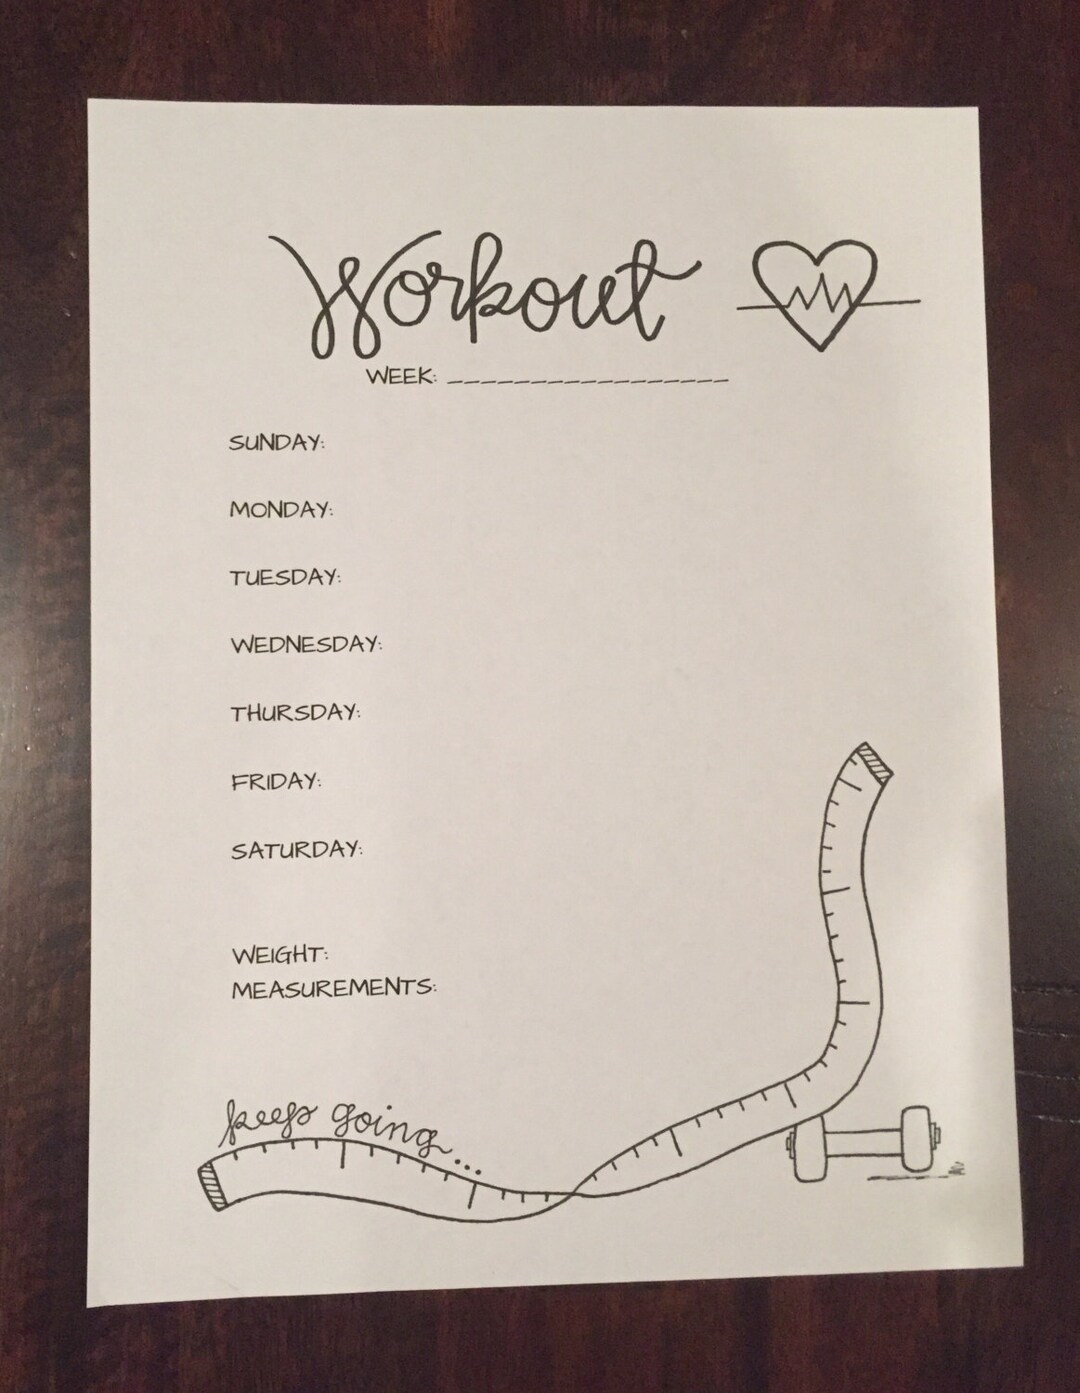 Workout
WEEK: _________________
SUNDAY:
MONDAY:
TUESDAY:
WEDNESDAY:
THURSDAY:
FRIDAY:
SATURDAY:
WEIGHT:
MEASUREMENTS:
keep going...